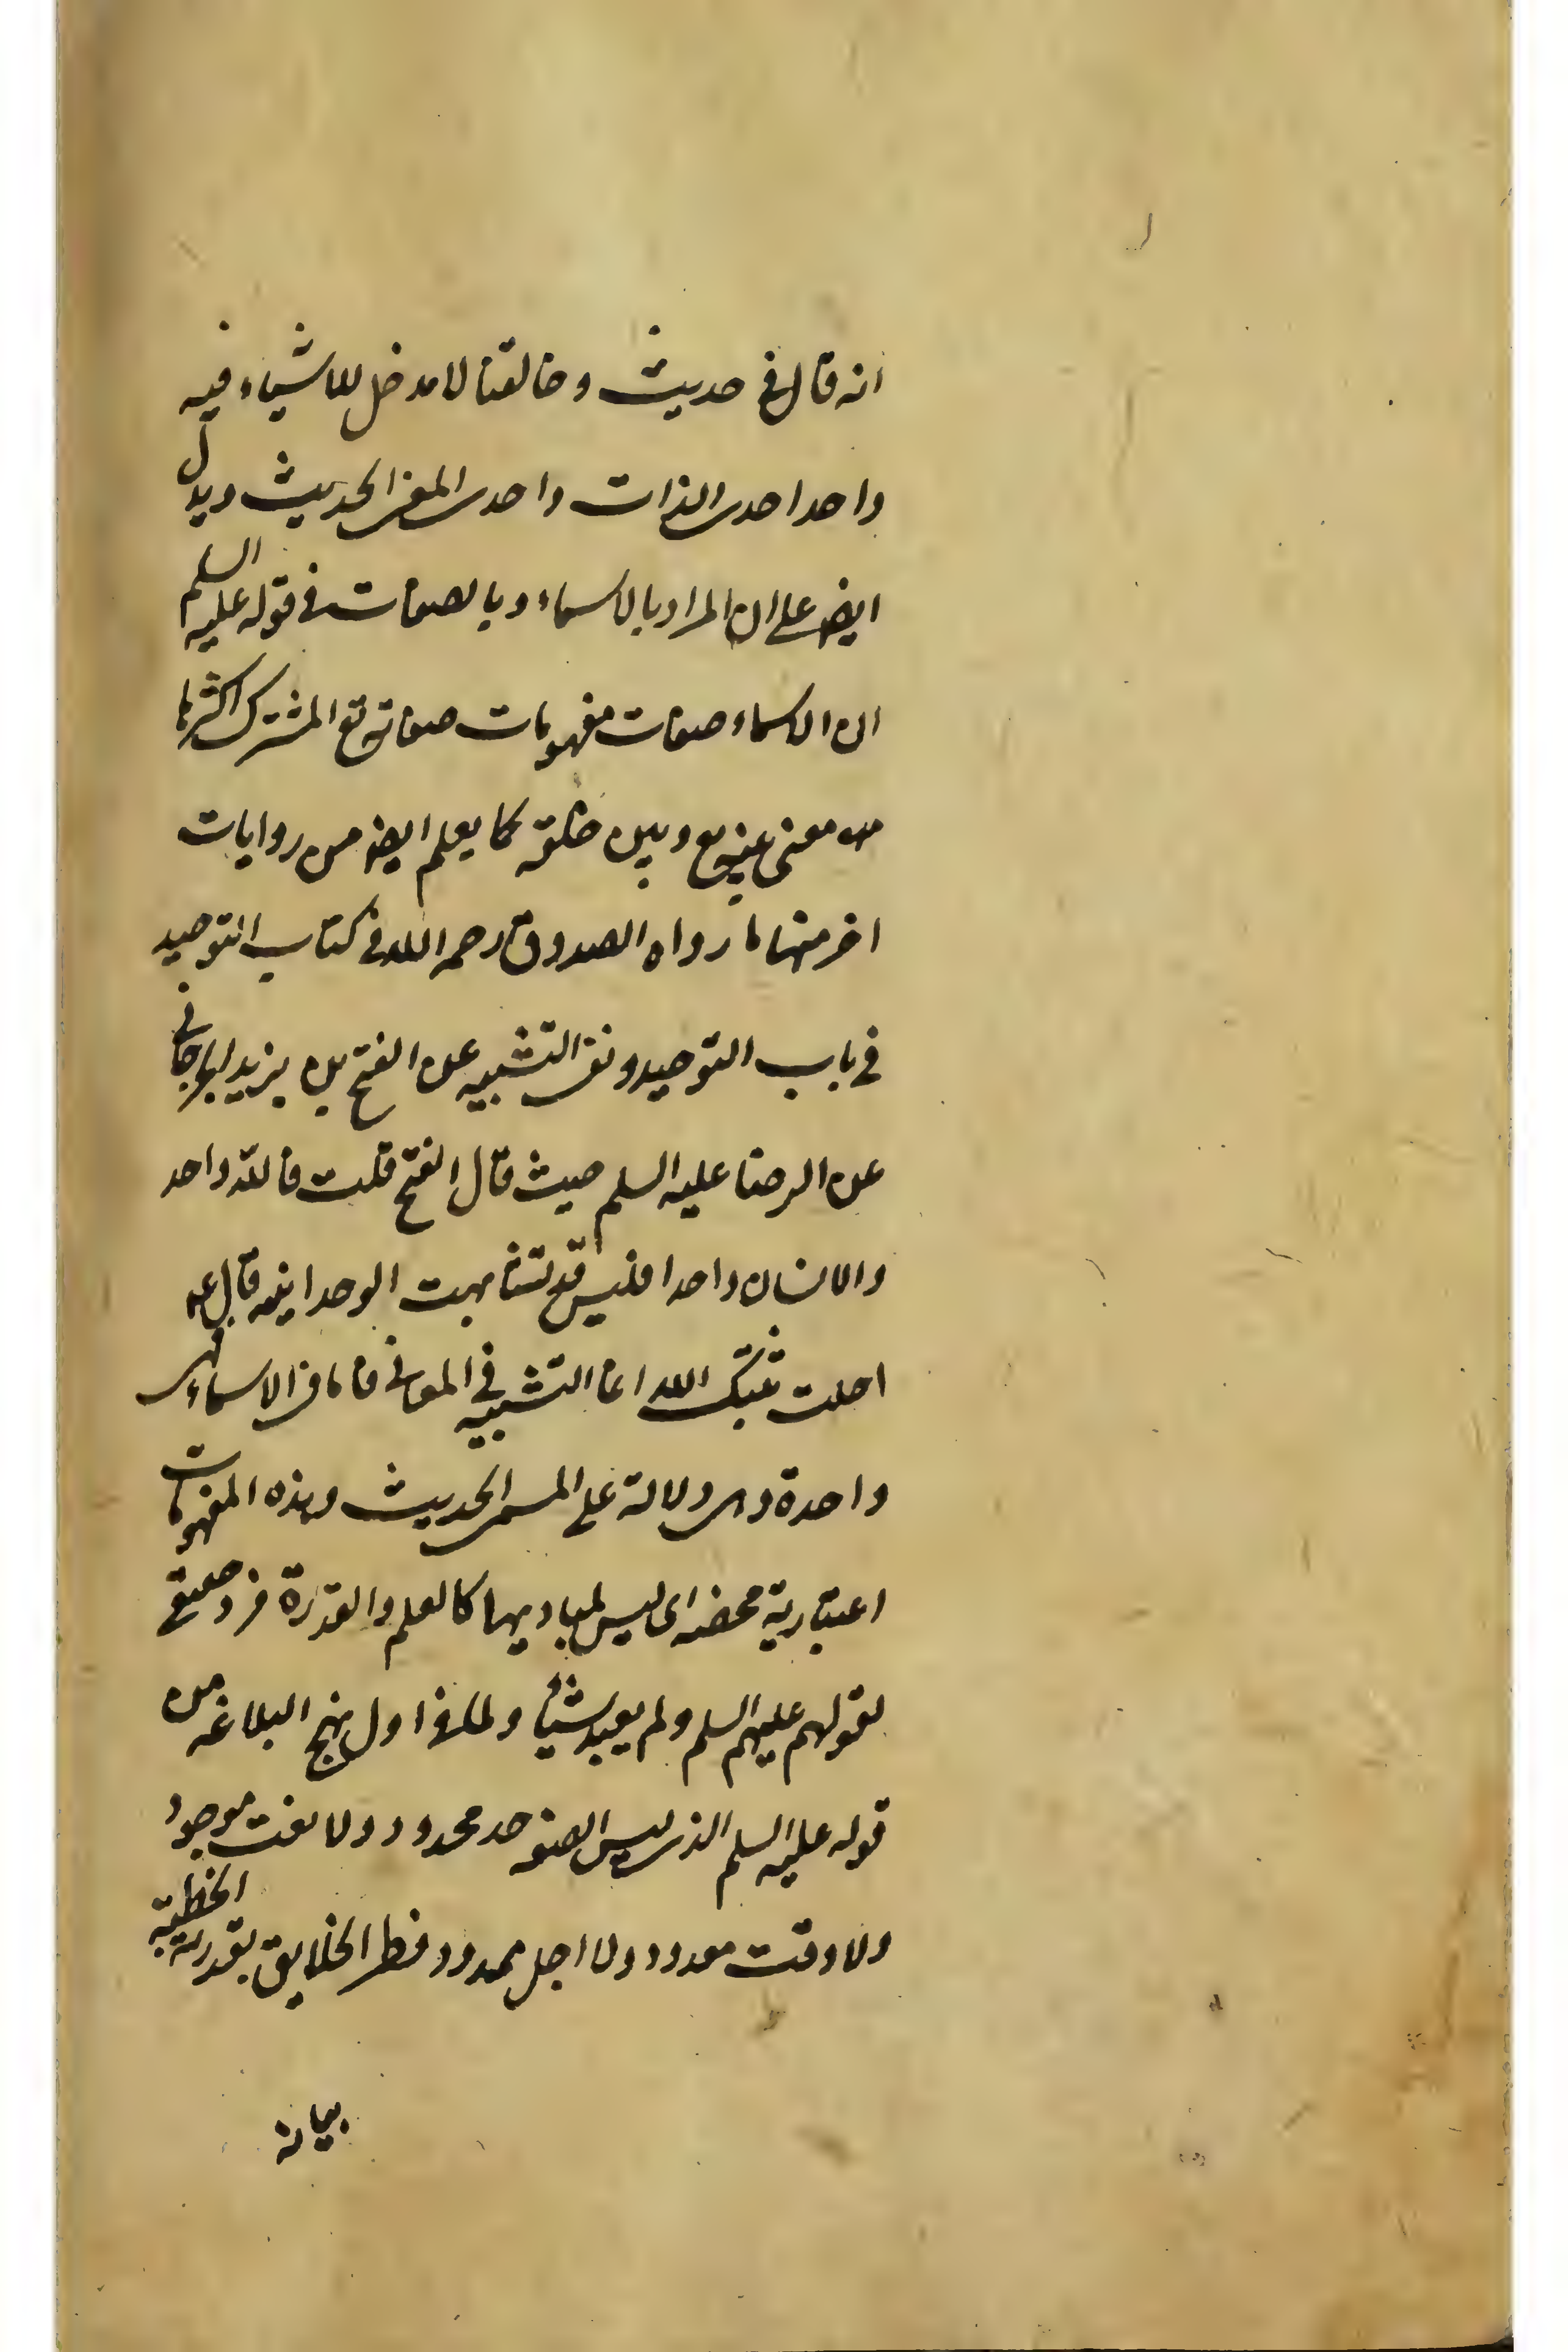 انه قال في حديث وخالقنا لا مدخل للاشياء فيه
واحد احدى الذات واحدى المعنى الحديث ويدل
ايض على ان المراد بالاسماء وبالصفات في قوله عليه السلم
ان الاسماء صفات مفهومات صفاته تع المشترك اكثرها
معنى بينه تع وبين خلقه كما يعلم ايض من روايات
اخر منها ما رواه الصدوق رحمه الله في كتاب التوحيد
في باب التوحيد ونفى التشبيه عن الفتح بن يزيد الجرجاني
عن الرضا عليه السلم حيث قال الفتح قلت فالله واحد
والانسان واحد افليس قد تشابهت الوحدانيه قال ع
احلت ثبتك الله انما التشبيه في المعاني فاما في الاسماء فهى
واحدة وهى دلالة على المسمى الحديث وهذه المفهومات
اعتبارية محضه اى ليس لمباديها كالعلم والقدرة فرد حقيقى
لقولهم عليهم السلم ولم يعبد شيئا ولما في اول نهج البلاغه من
قوله عليه السلم الذى ليس لصفته حد محدود ولا نعت موجود
ولا وقت معدود ولا اجل ممدود فطر الخلايق بقدرته الخطبة
بيانه